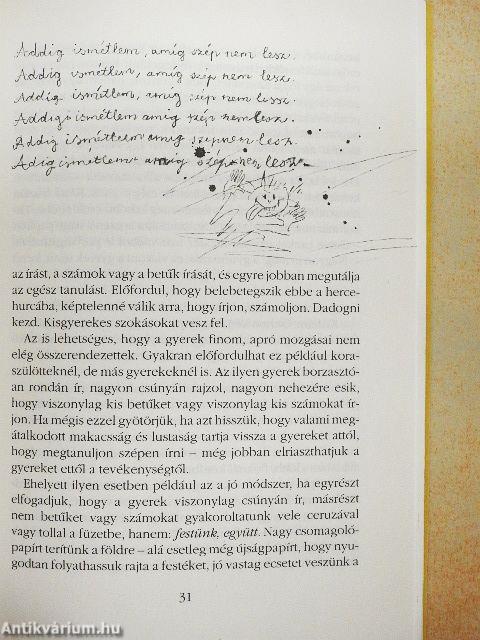 Addig ismétlem, amíg szép nem lesz.
Addig ismétlem, amíg szép nem lesz.
Addig ismétlem, amíg szép nem lessz.
Addigo ismétlem amíg szép nemlesz.
Addig ismétlem amig szépnem lesz.
Adig ismétlem amig szép nem lesz
az írást, a számok vagy a betűk írását, és egyre jobban megutálja
az egész tanulást. Előfordul, hogy belebetegszik ebbe a herce-
hurcába, képtelenné válik arra, hogy írjon, számoljon. Dadogni
kezd. Kisgyerekes szokásokat vesz fel.
Az is lehetséges, hogy a gyerek finom, apró mozgásai nem
elég összerendezettek. Gyakran előfordulhat ez például kora-
szülötteknél, de más gyerekeknél is. Az ilyen gyerek borzasztó-
an rondán ír, nagyon csúnyán rajzol, nagyon nehezére esik,
hogy viszonylag kis betűket vagy viszonylag kis számokat ír-
jon. Ha mégis ezzel gyötörjük, ha azt hisszük, hogy valami meg-
átalkodott makacsság és lustaság tartja vissza a gyereket attól,
hogy megtanuljon szépen írni – még jobban elriaszthatjuk a
gyereket ettől a tevékenységtől.
Ehelyett ilyen esetben például az a jó módszer, ha egyrészt
elfogadjuk, hogy a gyerek viszonylag csúnyán ír, másrészt
nem betűket vagy számokat gyakoroltatunk vele ceruzával
vagy tollal a füzetbe, hanem: festünk, együtt. Nagy csomagoló-
papírt terítünk a földre – alá esetleg még újságpapírt, hogy nyu-
godtan folyathassuk rajta a festéket, jó vastag ecsetet veszünk a
31
Antikvárium.hu